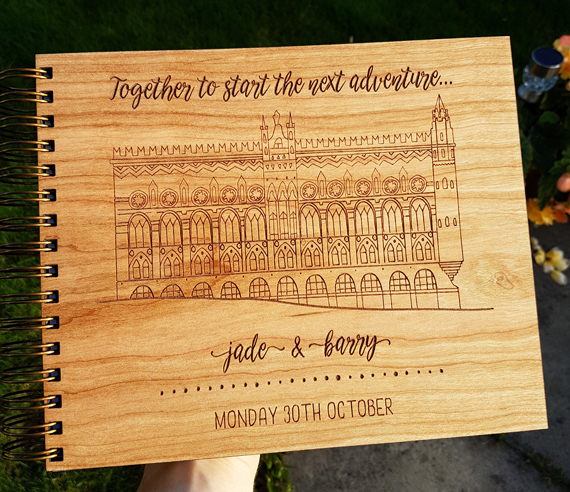 Together to start the next adventure...
jade & barry
MONDAY 30TH OCTOBER